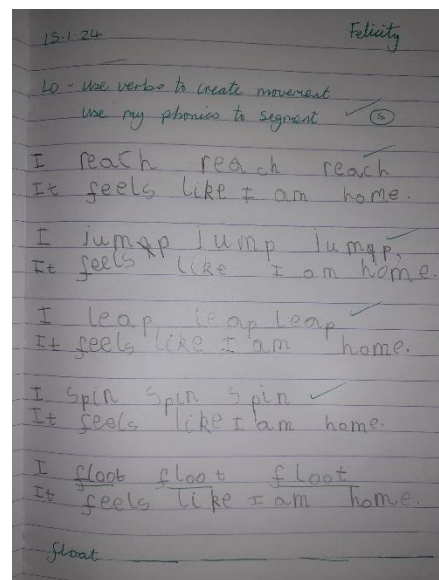 15.1.24 Felicity
LO - Use verbs to create movement
use my phonics to segment ✓ S
I reach reach reach
It feels like I am home.
I jumqp Jump Jumqp,
It feels like I am home.
I leap, leap leap
It feels like I am home.
I spin spin spin
It feels like I am home.
I floot floot floot
It feels like I am home.
float